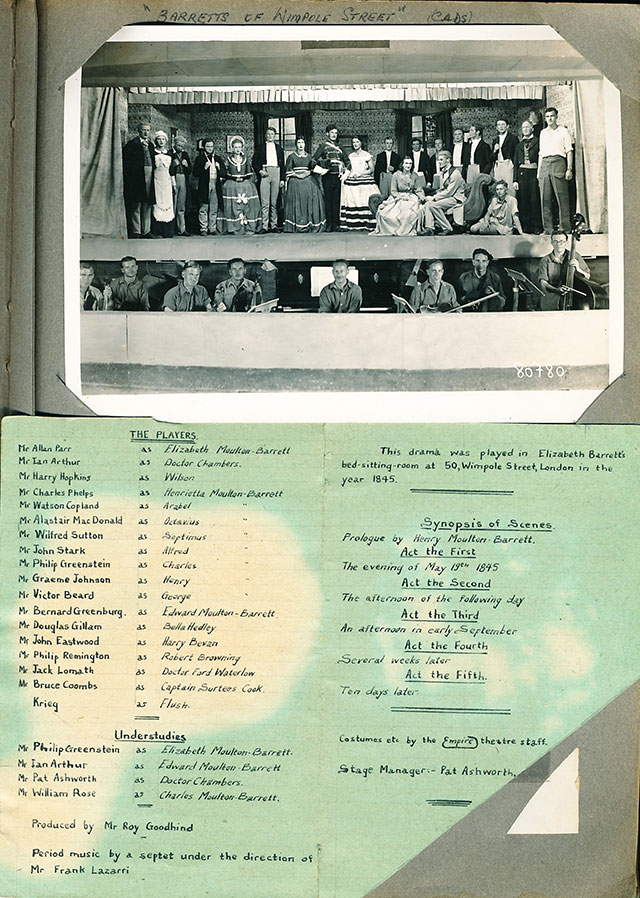 "BARRETTS OF WIMPOLE STREET" (CADS)
80780
THE PLAYERS.
Mr Allan Parr as Elizabeth Moulton-Barrett
Mr Ian Arthur as Doctor Chambers.
Mr Harry Hopkins as Wilson
Mr Charles Phelps as Henrietta Moulton-Barrett
Mr Watson Copland as Arabel "
Mr Alastair MacDonald as Octavius "
Mr Wilfred Sutton as Septimus "
Mr John Stark as Alfred "
Mr Philip Greenstein as Charles "
Mr Graeme Johnson as Henry "
Mr Victor Beard as George "
Mr Bernard Greenburg. as Edward Moulton-Barrett
Mr Douglas Gillam as Bella Hedley
Mr John Eastwood as Harry Bevan
Mr Philip Remington as Robert Browning
Mr Jack Lomath as Doctor Ford Waterlow
Mr Bruce Coombs as Captain Surtees Cook.
Krieg as Flush.
Understudies
Mr Philip Greenstein as Elizabeth Moulton-Barrett.
Mr Ian Arthur as Edward Moulton-Barrett
Mr Pat Ashworth as Doctor Chambers.
Mr William Rose as Charles Moulton-Barrett.
Produced by Mr Roy Goodhind
Period music by a septet under the direction of
Mr Frank Lazarri
This drama was played in Elizabeth Barrett's
bed-sitting-room at 50, Wimpole Street, London in the
year 1845.
Synopsis of Scenes.
Prologue by Henry Moulton-Barrett.
Act the First
The evening of May 19th 1845
Act the Second
The afternoon of the following day
Act the Third
An afternoon in early September
Act the Fourth
Several weeks later
Act the Fifth.
Ten days later
Costumes etc by the Empire theatre staff.
Stage Manager:- Pat Ashworth.